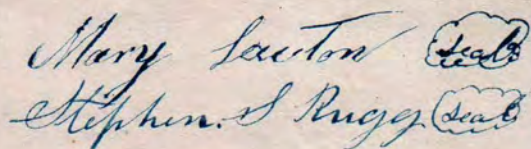 Mary Lawton Seal
Stephen. S Rugg Seal